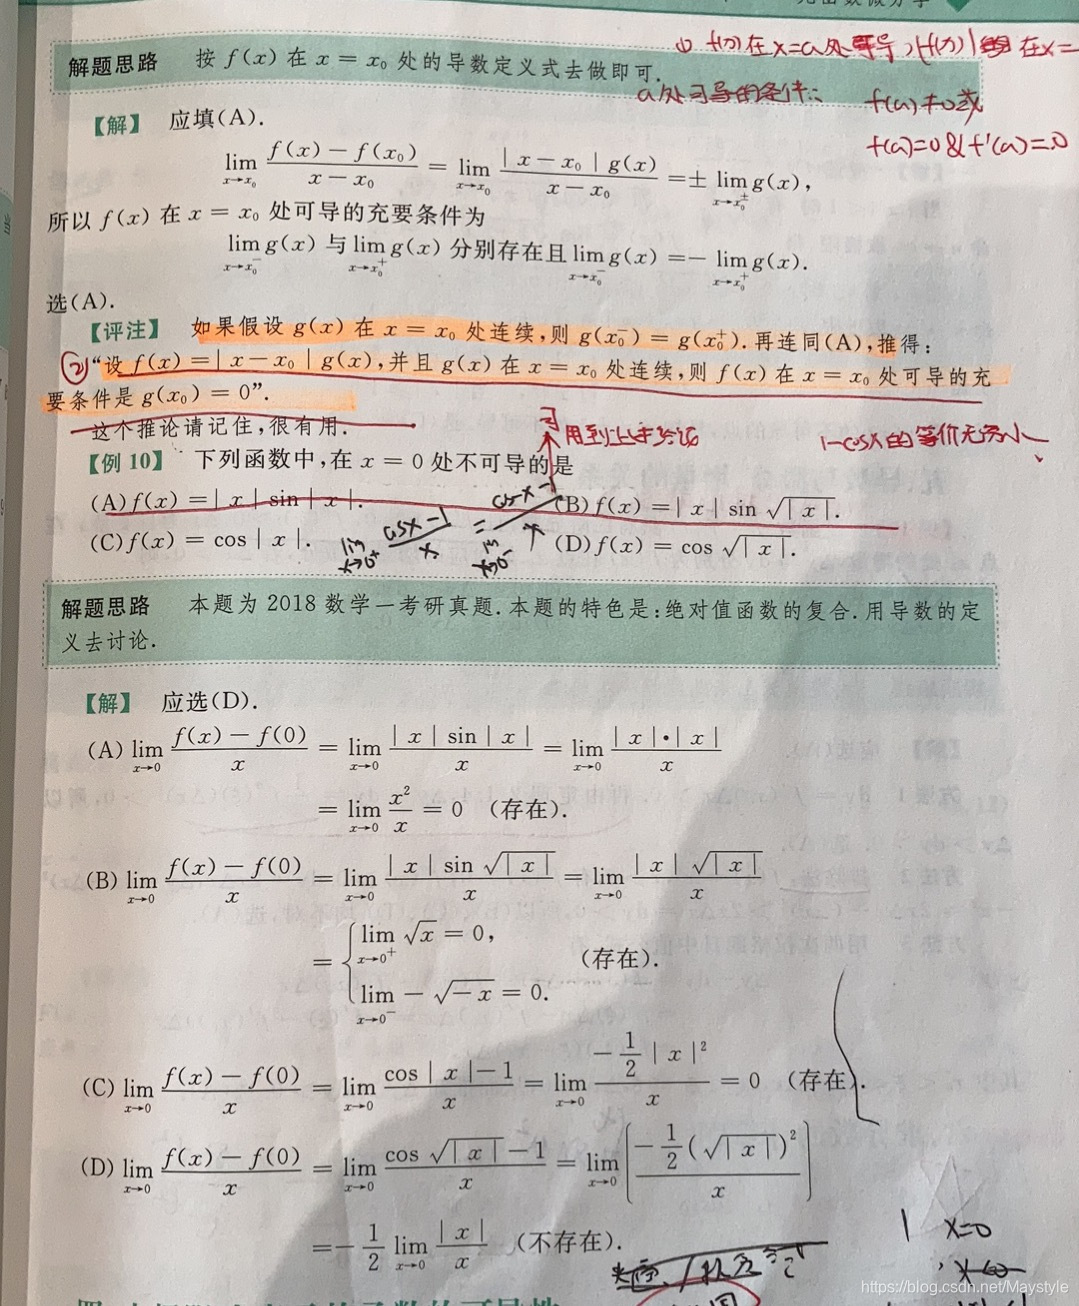 ① f(x)在x=a处可导，|f(x)|在x=
a处可导的条件：
f(a)≠0或
f(a)=0 & f'(a)=0
解题思路 按 f(x) 在 x = x₀ 处的导数定义式去做即可.
【解】 应填(A).
lim_{x→x₀} (f(x)－f(x₀))/(x－x₀) = lim_{x→x₀} (|x－x₀|g(x))/(x－x₀) = ± lim_{x→x₀^±} g(x),
所以 f(x) 在 x = x₀ 处可导的充要条件为
lim_{x→x₀⁻} g(x) 与 lim_{x→x₀⁺} g(x) 分别存在且 lim_{x→x₀⁻} g(x) =－ lim_{x→x₀⁺} g(x).
选(A).
【评注】 如果假设 g(x) 在 x = x₀ 处连续,则 g(x₀⁻) = g(x₀⁺). 再连同(A),推得:
② “设 f(x) =|x－x₀|g(x),并且 g(x) 在 x = x₀ 处连续,则 f(x) 在 x = x₀ 处可导的充
要条件是 g(x₀) = 0”.
这个推论请记住,很有用.
用到上述结论
1-cosx的等价无穷小
【例 10】 下列函数中,在 x = 0 处不可导的是
(A) f(x) =|x|sin|x|. (B) f(x) =|x|sin √|x|.
(C) f(x) = cos|x|. (D) f(x) = cos √|x|.
lim_{x→0⁺} (cosx－1)/x = lim_{x→0⁻} cosx－1
解题思路 本题为 2018 数学一考研真题. 本题的特色是:绝对值函数的复合. 用导数的定
义去讨论.
【解】 应选(D).
(A) lim_{x→0} (f(x)－f(0))/x = lim_{x→0} (|x|sin|x|)/x = lim_{x→0} (|x|·|x|)/x
= lim_{x→0} x²/x = 0 (存在).
(B) lim_{x→0} (f(x)－f(0))/x = lim_{x→0} (|x|sin √|x|)/x = lim_{x→0} (|x|√|x|)/x
= { lim_{x→0⁺} √x = 0,
(存在).
lim_{x→0⁻} －√－x = 0.
(C) lim_{x→0} (f(x)－f(0))/x = lim_{x→0} (cos|x|－1)/x = lim_{x→0} (－1/2|x|²)/x = 0 (存在).
(D) lim_{x→0} (f(x)－f(0))/x = lim_{x→0} (cos √|x|－1)/x = lim_{x→0} [(－1/2(√|x|)²)/x]
=－1/2 lim_{x→0} |x|/x (不存在).
1 x=0
https://blog.csdn.net/Maystyle